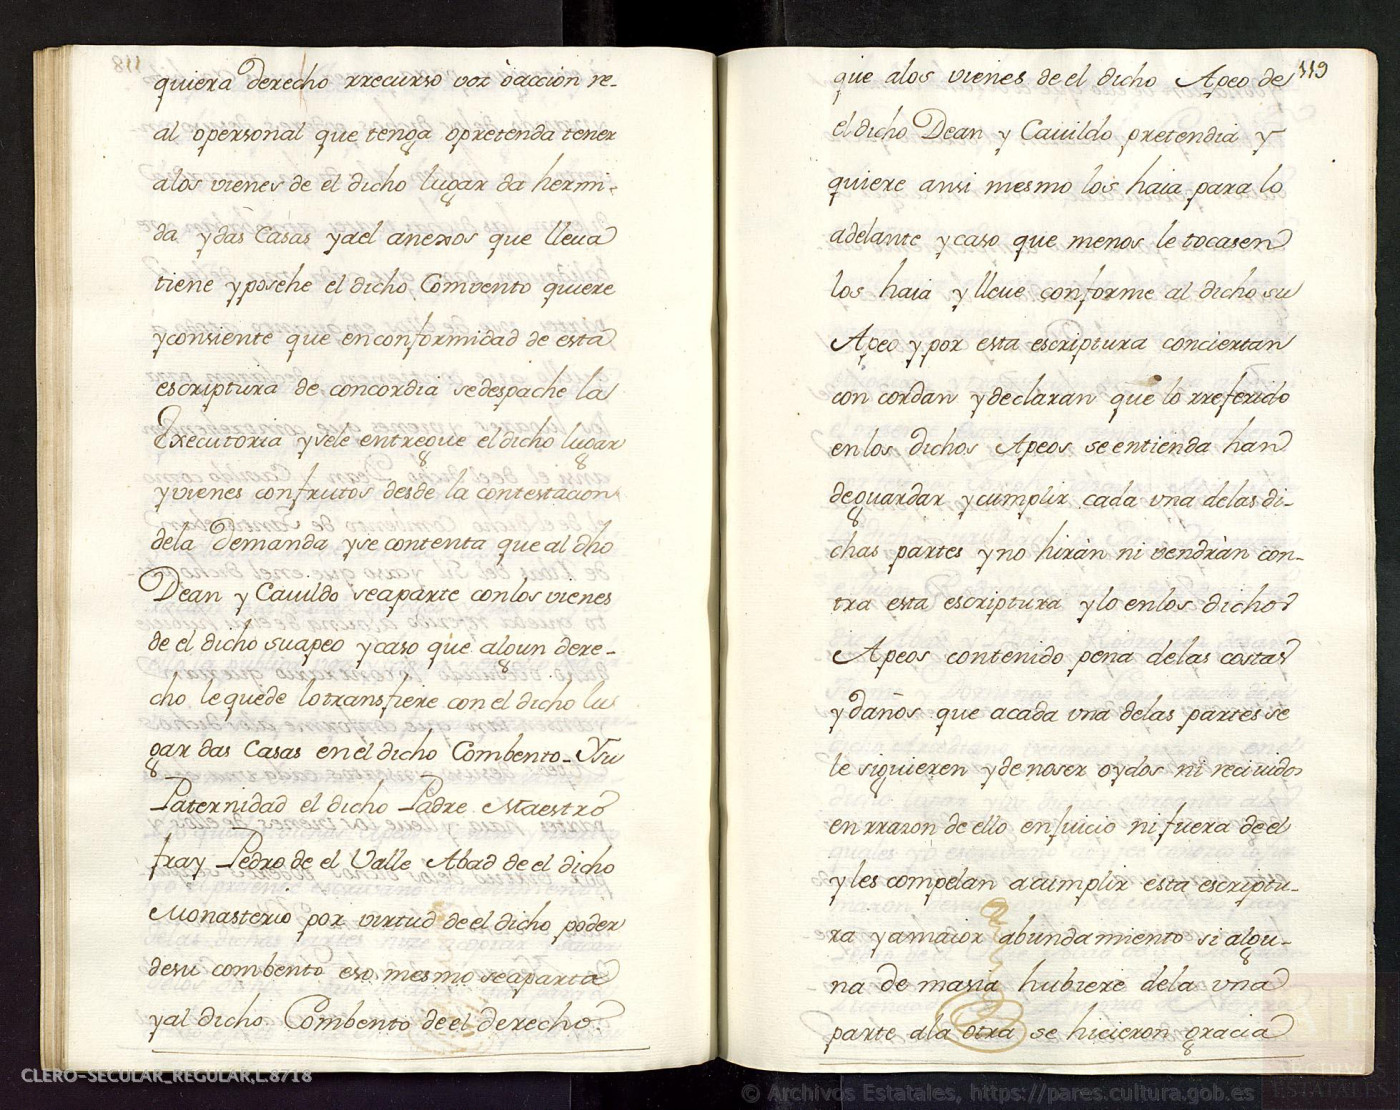 quiera derecho rrecurso voz o accion re-
al opersonal que tenga opretenda tener
alos vienes de el dicho lugar da hermi-
da ydas Casas yael anexos que lleua
tiene yposehe el dicho Comvento quiere
yconsiente que enconformidad de esta
escriptura de concordia sedespache la
Executoria ysele entregue eldicho lugar
yvienes confrutos desde la contestacion
dela Demanda yse contenta que al dho
Dean y Cauildo seaparte conlos vienes
de el dicho suapeo ycaso que algun dere-
cho le quede lotransfiere con el dicho lu
gar das Casas en el dicho Combento_ Ysu
Paternidad el dicho Padre Maestro
fray Pedro de el Valle Abad de el dicho
Monasterio por virtud de el dicho poder
desu combento eso mesmo seaparta
yal dicho Combento de el derecho
119
que alos vienes de el dicho Apeo de
el dicho Dean y Cauildo pretendia y
quiere ansi mesmo los haia para lo
adelante ycaso que menos le tocasen
los haia ylleue conforme al dicho su
Apeo ypor esta escriptura conciertan
con cordan ydeclaran que lo rreferido
enlos dichos Apeos seentienda han
deguardar ycumplir cada una delas di-
chas partes yno hiran ni vendran con-
tra esta escriptura ylo enlos dichos
Apeos contenido pena delas costas
ydaños que acada una delas partes se
le siguieren yde noser oydos ni reciuidos
en rrazon de ello enjuicio ni fuera de el
yles compelan acumplir esta escriptu-
ra yamaior abundamiento si algu-
na demasia hubiere dela una
parte ala otra se hicieron gracia
CLERO-SECULAR_REGULAR,L.8718
© Archivos Estatales, https://pares.cultura.gob.es